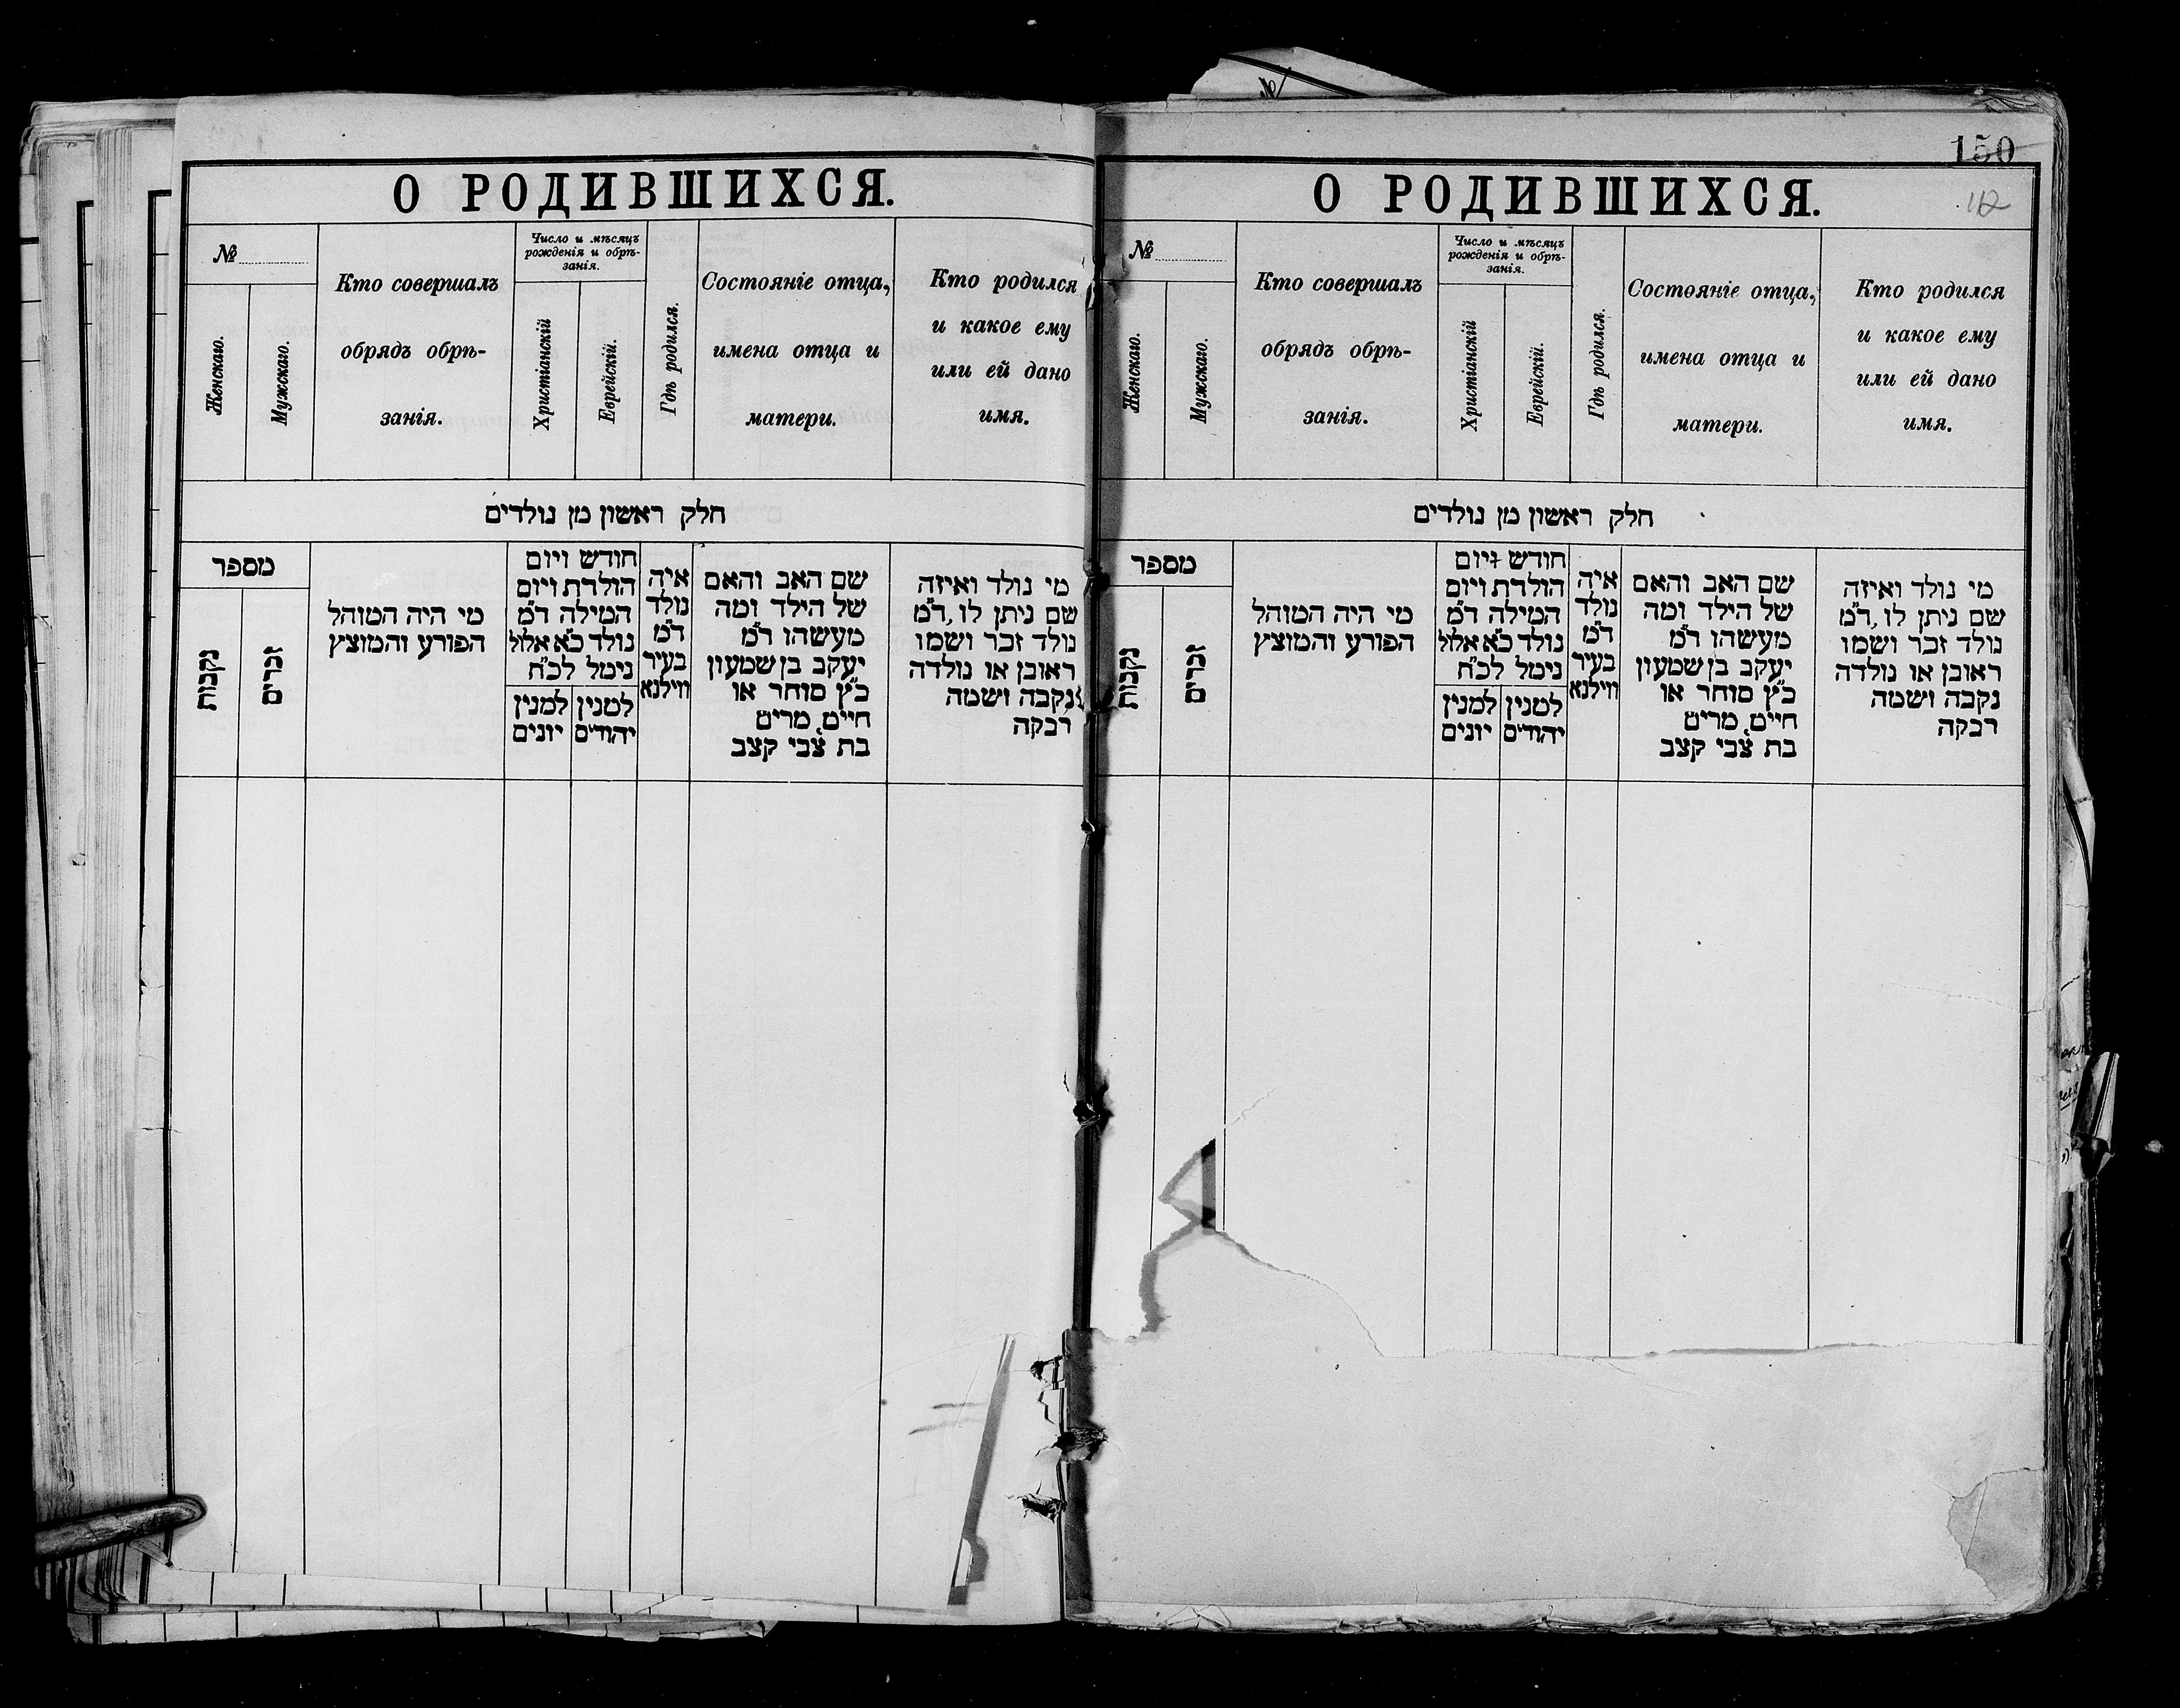 О РОДИВШИХСЯ.
№
Женскаго.
Мужскаго.
Кто совершалъ
обрядъ обрѣ-
занія.
Число и мѣсяцъ
рожденія и обрѣ-
занія.
Христіанскій
Еврейскій.
Гдѣ родился.
Состояніе отца,
имена отца и
матери.
Кто родился
и какое ему
или ей дано
имя.
חלק ראשון מן נולדים
מספר
נקבות
זכרים
מי היה המוהל
הפורע והמוצץ
חודש ויום
הולדת ויום
המילה ד״מ
נולד כ״א אלול
נימל לכ״ח
למנין
יונים
למנין
יהודים
איה
נולד
ד״מ
בעיר
ווילנא
שם האב והאם
של הילד ומה
מעשהו ד״מ
יעקב בן שמעון
כ״ץ סוחר או
חיים, מרים
בת צבי קצב
מי נולד ואיזה
שם ניתן לו, ד״מ
נולד זכר ושמו
ראובן או נולדה
נקבה ושמה
רבקה
150
112
О РОДИВШИХСЯ.
№
Женскаго.
Мужскаго.
Кто совершалъ
обрядъ обрѣ-
занія.
Число и мѣсяцъ
рожденія и обрѣ-
занія.
Христіанскій
Еврейскій.
Гдѣ родился.
Состояніе отца,
имена отца и
матери.
Кто родился
и какое ему
или ей дано
имя.
חלק ראשון מן נולדים
מספר
נקבות
זכרים
מי היה המוהל
הפורע והמוצץ
חודש ויום
הולדת ויום
המילה ד״מ
נולד כ״א אלול
נימל לכ״ח
למנין
יונים
למנין
יהודים
איה
נולד
ד״מ
בעיר
ווילנא
שם האב והאם
של הילד ומה
מעשהו ד״מ
יעקב בן שמעון
כ״ץ סוחר או
חיים, מרים
בת צבי קצב
מי נולד ואיזה
שם ניתן לו, ד״מ
נולד זכר ושמו
ראובן או נולדה
נקבה ושמה
רבקה